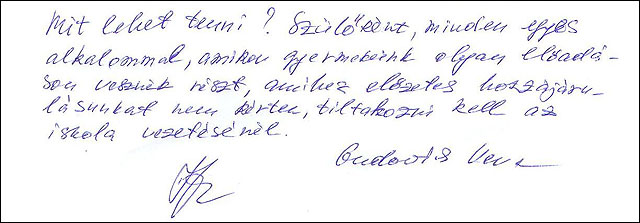 Mit lehet tenni? Szülőként, minden egyes
alkalommal, amikor gyermekeink olyan előadá-
son vesznek részt, amihez előzetes hozzájáru-
lásunkat nem kérték, tiltakozni kell az
iskola vezetésénél.
Vera